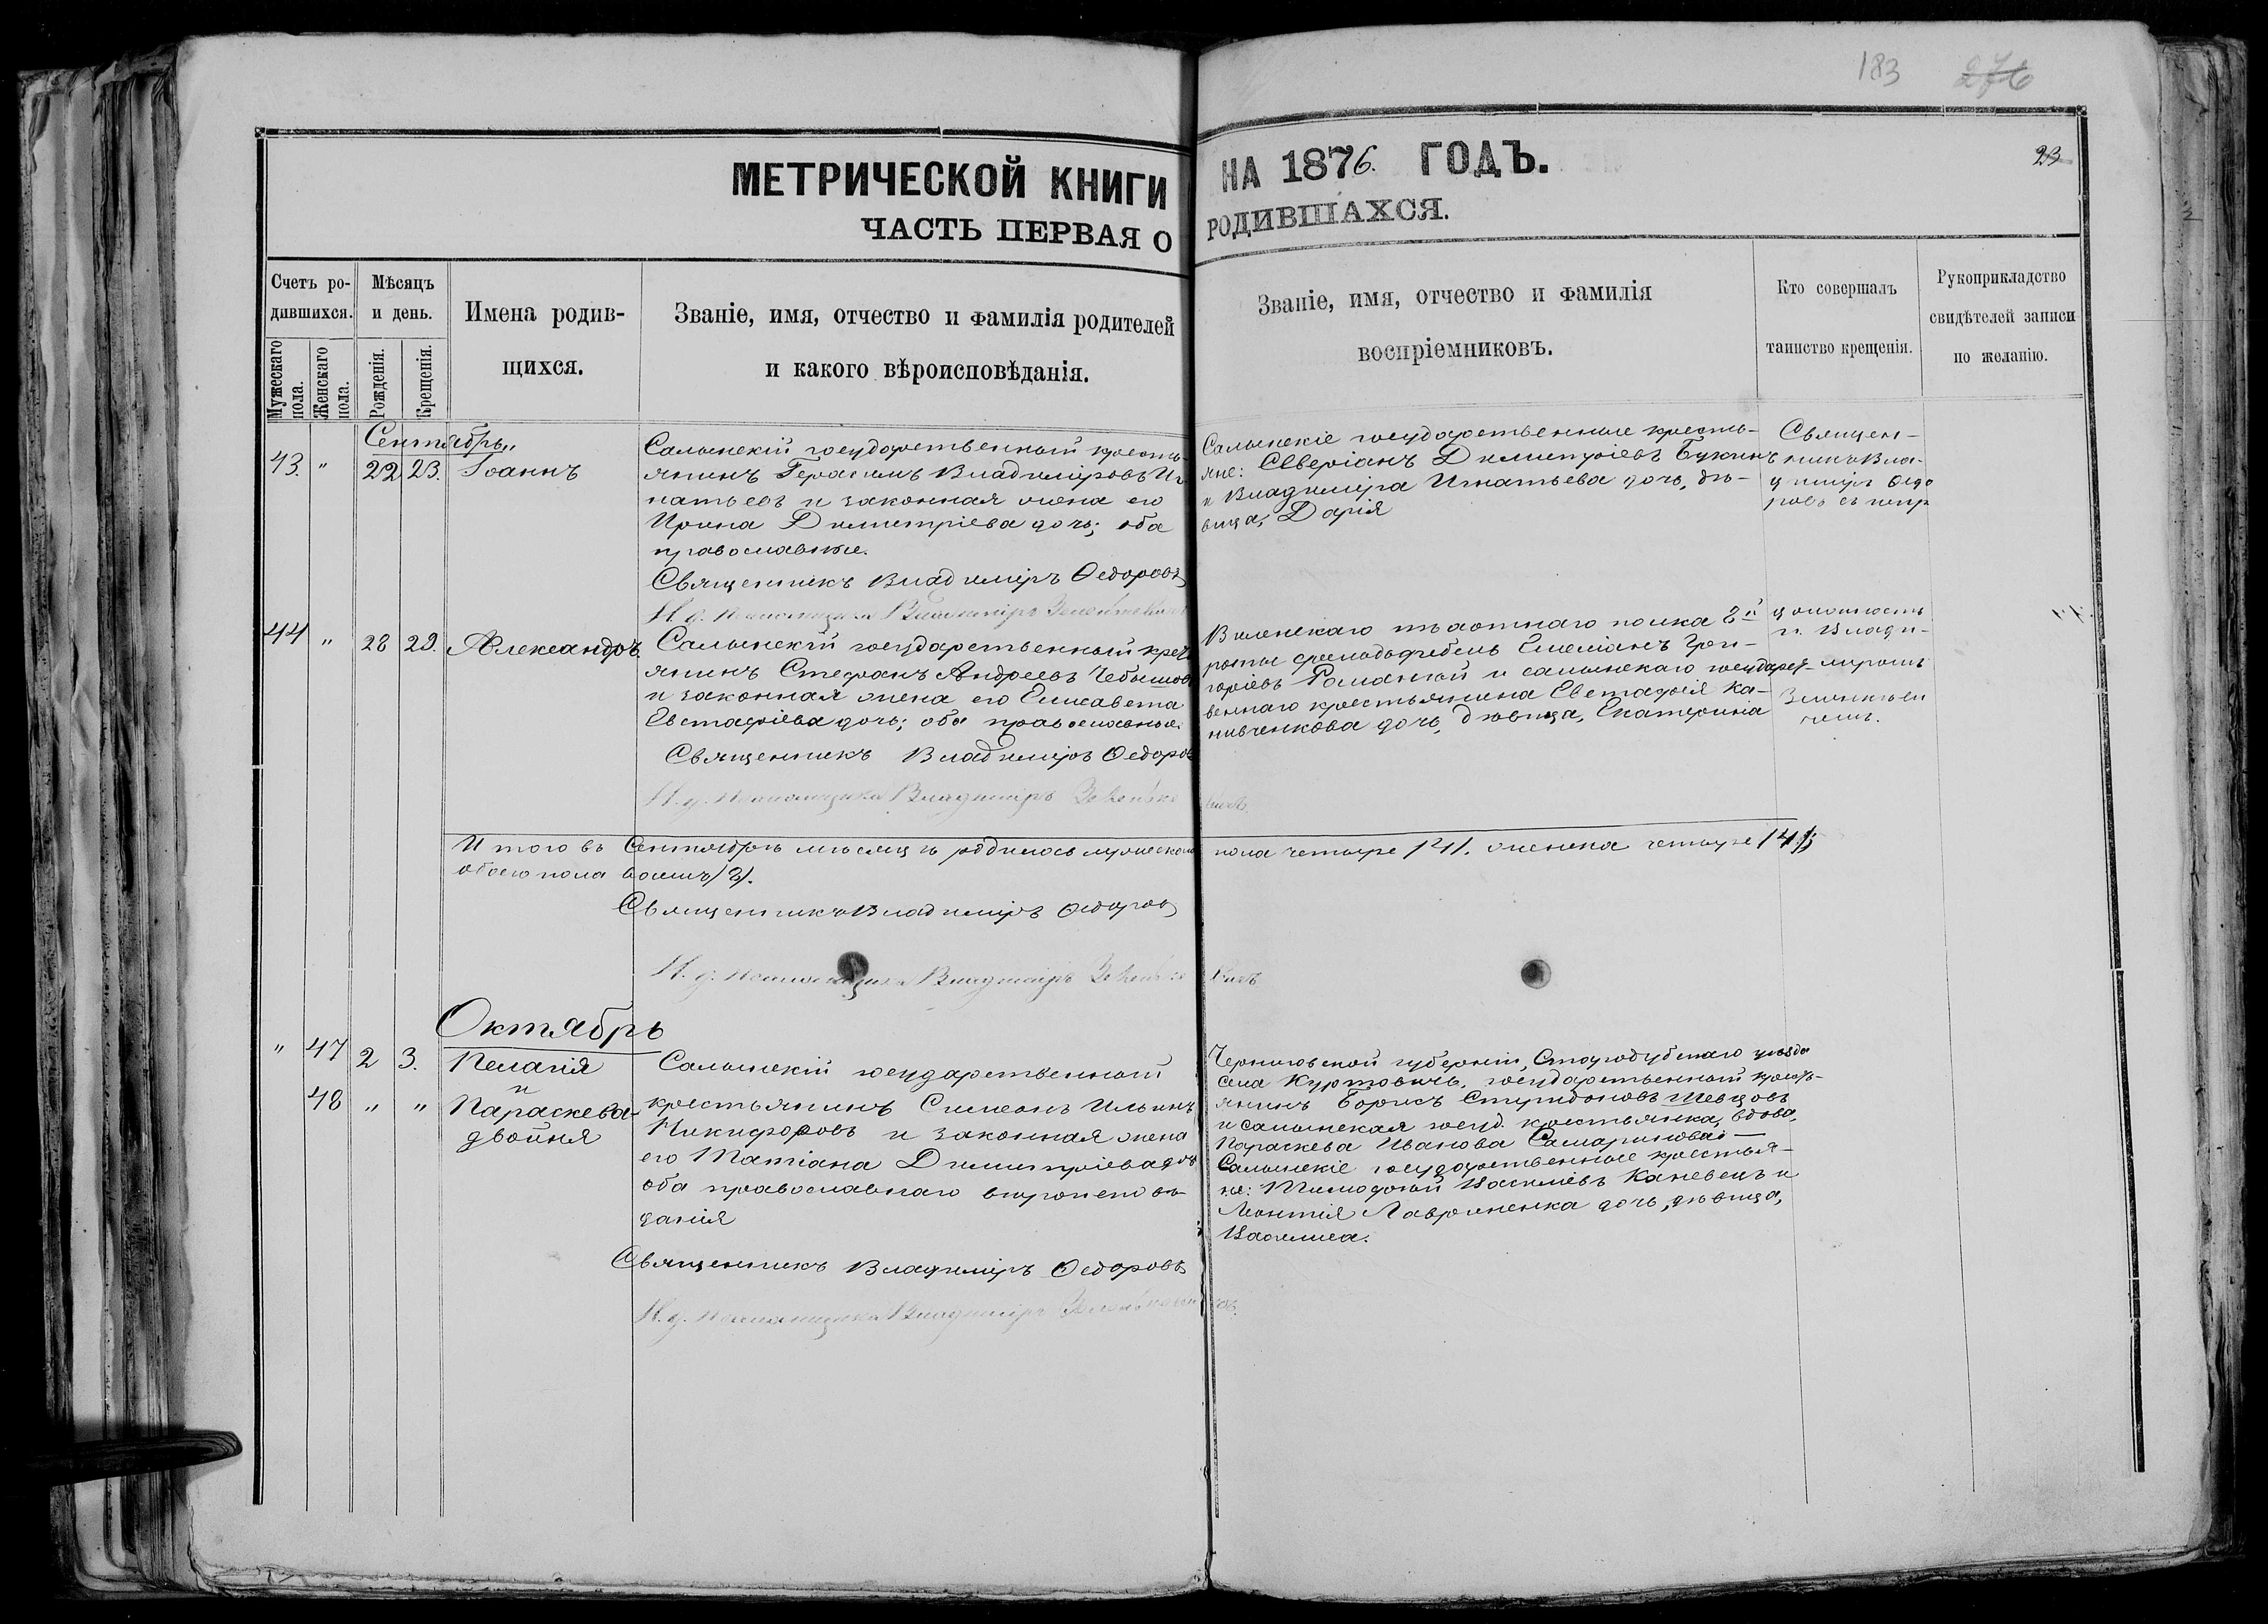 183 276
МЕТРИЧЕСКОЙ КНИГИ НА 1876. ГОДЪ.
23
ЧАСТЬ ПЕРВАЯ О РОДИВШИХСЯ.
Счетъ ро-
дившихся.
Мужескаго пола.
Женскаго пола.
Мѣсяцъ
и день.
Рожденія.
Крещенія.
Имена родив-
щихся.
Званіе, имя, отчество и фамилія родителей
и какого вѣроисповѣданія.
Званіе, имя, отчество и фамилія
воспріемниковъ.
Кто совершалъ
таинство крещенія.
Рукоприкладство
свидѣтелей записи
по желанію.
Сентябрь
43. " 22 23. Іоаннъ
Салынскій государственный кресть-
янинъ Герасимъ Владиміровъ Иг
натьевъ и законная жена его
Ирина Димитріева дочь; оба
православные.
Священникъ Владиміръ Ѳедоровъ
И. д. Псаломщика Владиміръ
Салынскіе государственные кресть-
яне: Северіанъ Димитріевъ Букинъ
и Владиміра Игнатьева дочь, дѣ-
вица, Дарія
Священ-
никъ Вла-
диміръ Ѳедо
ровъ съ испр.
44 " 28 29. Александръ.
Салынскій государственный крест
янинъ Стефанъ Андреевъ Чебышовъ
и законная жена его Елисавета
Евстафіева дочь; оба православные.
Священникъ Владиміръ Ѳедоровъ
И. д. Псаломщика Владиміръ
Виленскаго пѣхотнаго полка 8й
роты фельдфебель Емеліанъ Гри-
горіевъ Романой и салынскаго государст-
веннаго крестьянина Евстафія Ка-
нивченкова дочь, дѣвица, Екатерина
должность
п. Влади-
миромъ
Итого въ Сентябрѣ мѣсяцѣ родилось мужеского пола четыре /4/. женска четыре /4/;
обоего пола восемь /8/.
Священникъ Владиміръ Ѳедоровъ
И. д. Псаломщика Владиміръ
Октябрь
" 47 2 3. Пелагія
и
48 " " Параскева-
двойня
Салынскій государственный
крестьянинъ Симеонъ Ильинъ
Никифоровъ и законная жена
его Татіана Димитріева доч
оба православнаго вѣроисповѣ-
данія
Священникъ Владиміръ Ѳедоровъ
И. д. Псаломщика Владиміръ
Черниговской губерніи, Стародубскаго уѣзда
села Куртовичъ, государственный кресть-
янинъ Борисъ Спиридоновъ Шевцовъ
и салынская госуд. крестьянка, вдова,
Параскева Иванова Самаринова —
Салынскіе государственные крестья-
не: Тимофей Василіевъ Каневецъ и
Леонтія Лавриненка дочь, дѣвица,
Василиса.